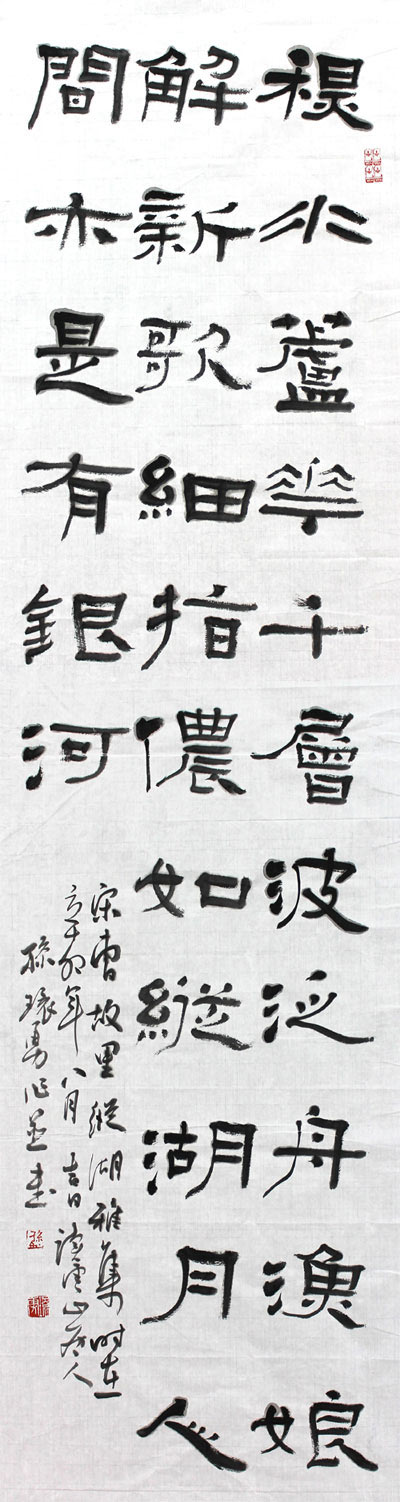 水蘆華千層波泛舟漁娘
解新歌細指儂如縱湖月人
問亦是有銀河
宋曹故里縱湖雅集時在
辛卯年八月吉日山人
孫環勇作並書